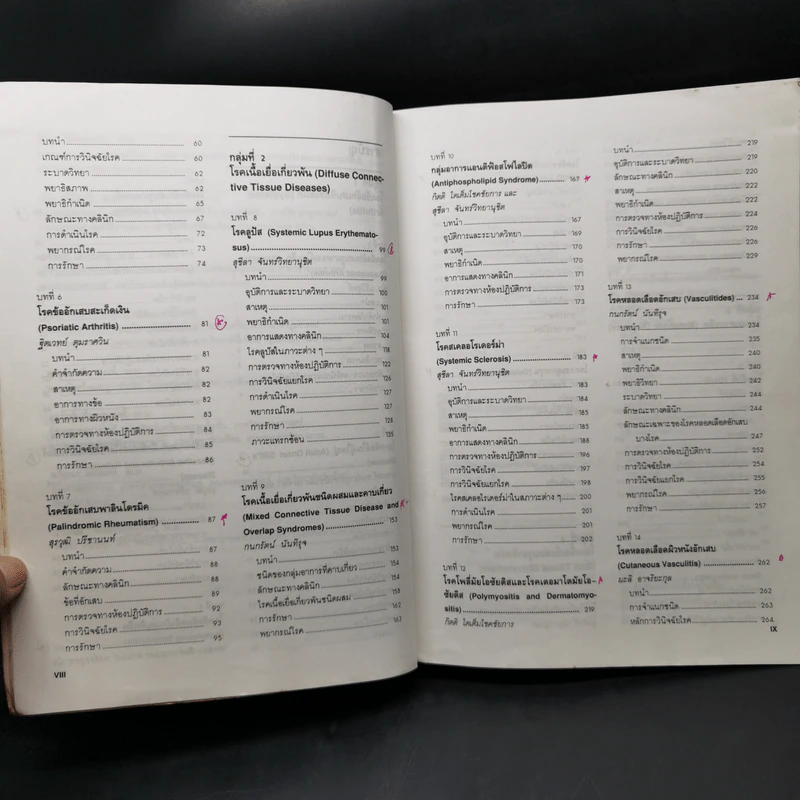 บทนำ 60
เกณฑ์การวินิจฉัยโรค 60
ระบาดวิทยา 62
พยาธิสภาพ 62
พยาธิกำเนิด 65
ลักษณะทางคลินิก 67
การดำเนินโรค 72
พยากรณ์โรค 73
การรักษา 74
บทที่ 6
โรคข้ออักเสบสะเก็ดเงิน
(Psoriatic Arthritis) 81
ฐิตเวทย์ ตุมราศวิน
บทนำ 81
คำจำกัดความ 82
สาเหตุ 82
อาการทางข้อ 82
อาการทางผิวหนัง 83
การตรวจทางห้องปฏิบัติการ 84
การวินิจฉัยโรค 85
การรักษา 86
บทที่ 7
โรคข้ออักเสบพาลินโดรมิค
(Palindromic Rheumatism) 87
สุรวุฒิ ปรีชานนท์
บทนำ 87
คำจำกัดความ 88
ลักษณะทางคลินิก 88
ข้อที่อักเสบ 89
การตรวจทางห้องปฏิบัติการ 92
การวินิจฉัยโรค 93
การรักษา 95
VIII
กลุ่มที่ 2
โรคเนื้อเยื่อเกี่ยวพัน (Diffuse Connec-
tive Tissue Diseases)
บทที่ 8
โรคลูปัส (Systemic Lupus Erythemato-
sus) 99
สุชีลา จันทร์วิทยานุชิต
บทนำ 99
อุบัติการและระบาดวิทยา 100
สาเหตุ 101
พยาธิกำเนิด 101
อาการแสดงทางคลินิก 104
โรคลูปัสในภาวะต่าง ๆ 118
การตรวจทางห้องปฏิบัติการ 122
การวินิจฉัยแยกโรค 126
การดำเนินโรค 127
พยากรณ์โรค 127
การรักษา 128
ภาวะแทรกซ้อน 135
บทที่ 9
โรคเนื้อเยื่อเกี่ยวพันชนิดผสมและคาบเกี่ยว
(Mixed Connective Tissue Disease and
Overlap Syndromes) 153
กนกรัตน์ นันทิรุจ
บทนำ 153
ชนิดของกลุ่มอาการที่คาบเกี่ยว 154
ลักษณะทางคลินิก 154
โรคเนื้อเยื่อเกี่ยวพันชนิดผสม 158
การรักษา 162
พยากรณ์โรค 163
บทที่ 10
กลุ่มอาการแอนติฟอสโฟไลปิด
(Antiphospholipid Syndrome) 167
กิตติ โตเต็มโชคชัยการ และ
สุชีลา จันทร์วิทยานุชิต
บทนำ 167
อุบัติการและระบาดวิทยา 169
สาเหตุ 170
พยาธิกำเนิด 170
อาการแสดงทางคลินิก 171
การตรวจทางห้องปฏิบัติการ 173
การรักษา 173
บทที่ 11
โรคสเคลอโรเดอร์ม่า
(Systemic Sclerosis) 183
สุชีลา จันทร์วิทยานุชิต
บทนำ 183
อุบัติการและระบาดวิทยา 184
สาเหตุ 185
พยาธิกำเนิด 185
อาการแสดงทางคลินิก 188
การตรวจทางห้องปฏิบัติการ 196
การวินิจฉัยโรค 197
การวินิจฉัยแยกโรค 198
โรคสเคอโรเดอร์ม่าในภาวะต่าง ๆ 200
การดำเนินโรค 201
พยากรณ์โรค 201
การรักษา 202
บทที่ 12
โรคโพลีมัยโอซัยติสและโรคเดอมาโตมัยโอ-
ซัยติส (Polymyositis and Dermatomyo-
sitis) 219
กิตติ โตเต็มโชคชัยการ
บทนำ 219
อุบัติการและระบาดวิทยา 220
ลักษณะทางคลินิก 220
สาเหตุ 222
พยาธิกำเนิด 222
การตรวจทางห้องปฏิบัติการ 224
การวินิจฉัยโรค 226
การรักษา 226
พยากรณ์โรค 229
บทที่ 13
โรคหลอดเลือดอักเสบ (Vasculitides) 234
กนกรัตน์ นันทิรุจ
บทนำ 234
การจำแนกชนิด 235
สาเหตุ 240
พยาธิกำเนิด 240
พยาธิวิทยา 242
ระบาดวิทยา 244
ลักษณะทางคลินิก 244
ลักษณะเฉพาะของโรคหลอดเลือดอักเสบ
บางโรค 247
การตรวจทางห้องปฏิบัติการ 252
การวินิจฉัยโรค 254
การวินิจฉัยแยกโรค 254
การรักษา 255
พยากรณ์โรค 256
การรักษา 257
บทที่ 14
โรคหลอดเลือดผิวหนังอักเสบ
(Cutaneous Vasculitis) 262
มะลิ อาจริยะกุล
บทนำ 262
การจำแนกชนิด 263
หลักการวินิจฉัยโรค 264
IX